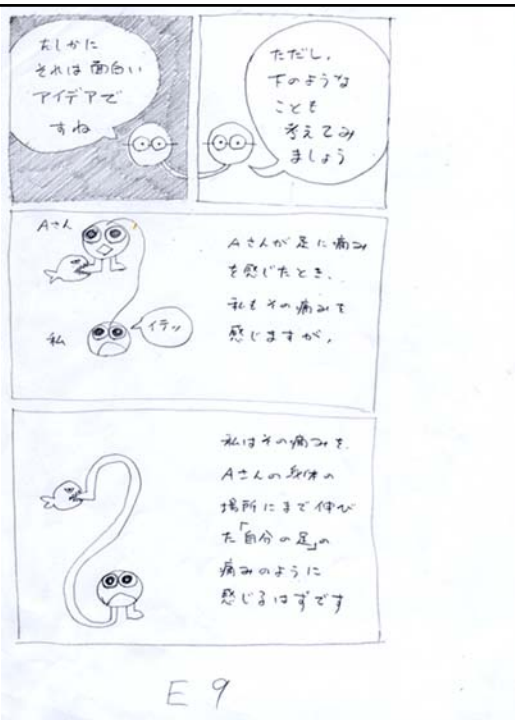 たしかに
それは面白い
アイデアで
すね
ただし、
下のような
ことも
考えてみ
ましょう
Aさん
私
イテッ
Aさんが足に痛み
を感じたとき、
私もその痛みを
感じますが、
私はその痛みを、
Aさんの身体の
場所にまで伸び
た「自分の足」の
痛みのように
感じるはずです
E9